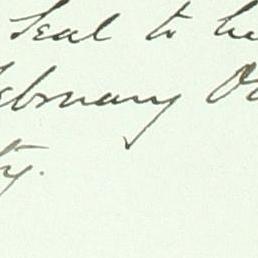 Seal to be
February O
ty.